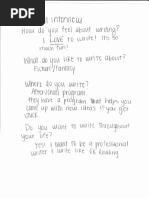 interview
How do you feel about writing?
I LOVE to write! It's so
much fun!
What do you like to write about?
Fiction/fantasy
Where do you write?
Afterschool program
they have a program that helps you
come up with new ideas if you get
stuck.
Do you want to write throughout
your life?
Yes! I want to be a professional
writer I write like JK Rowling